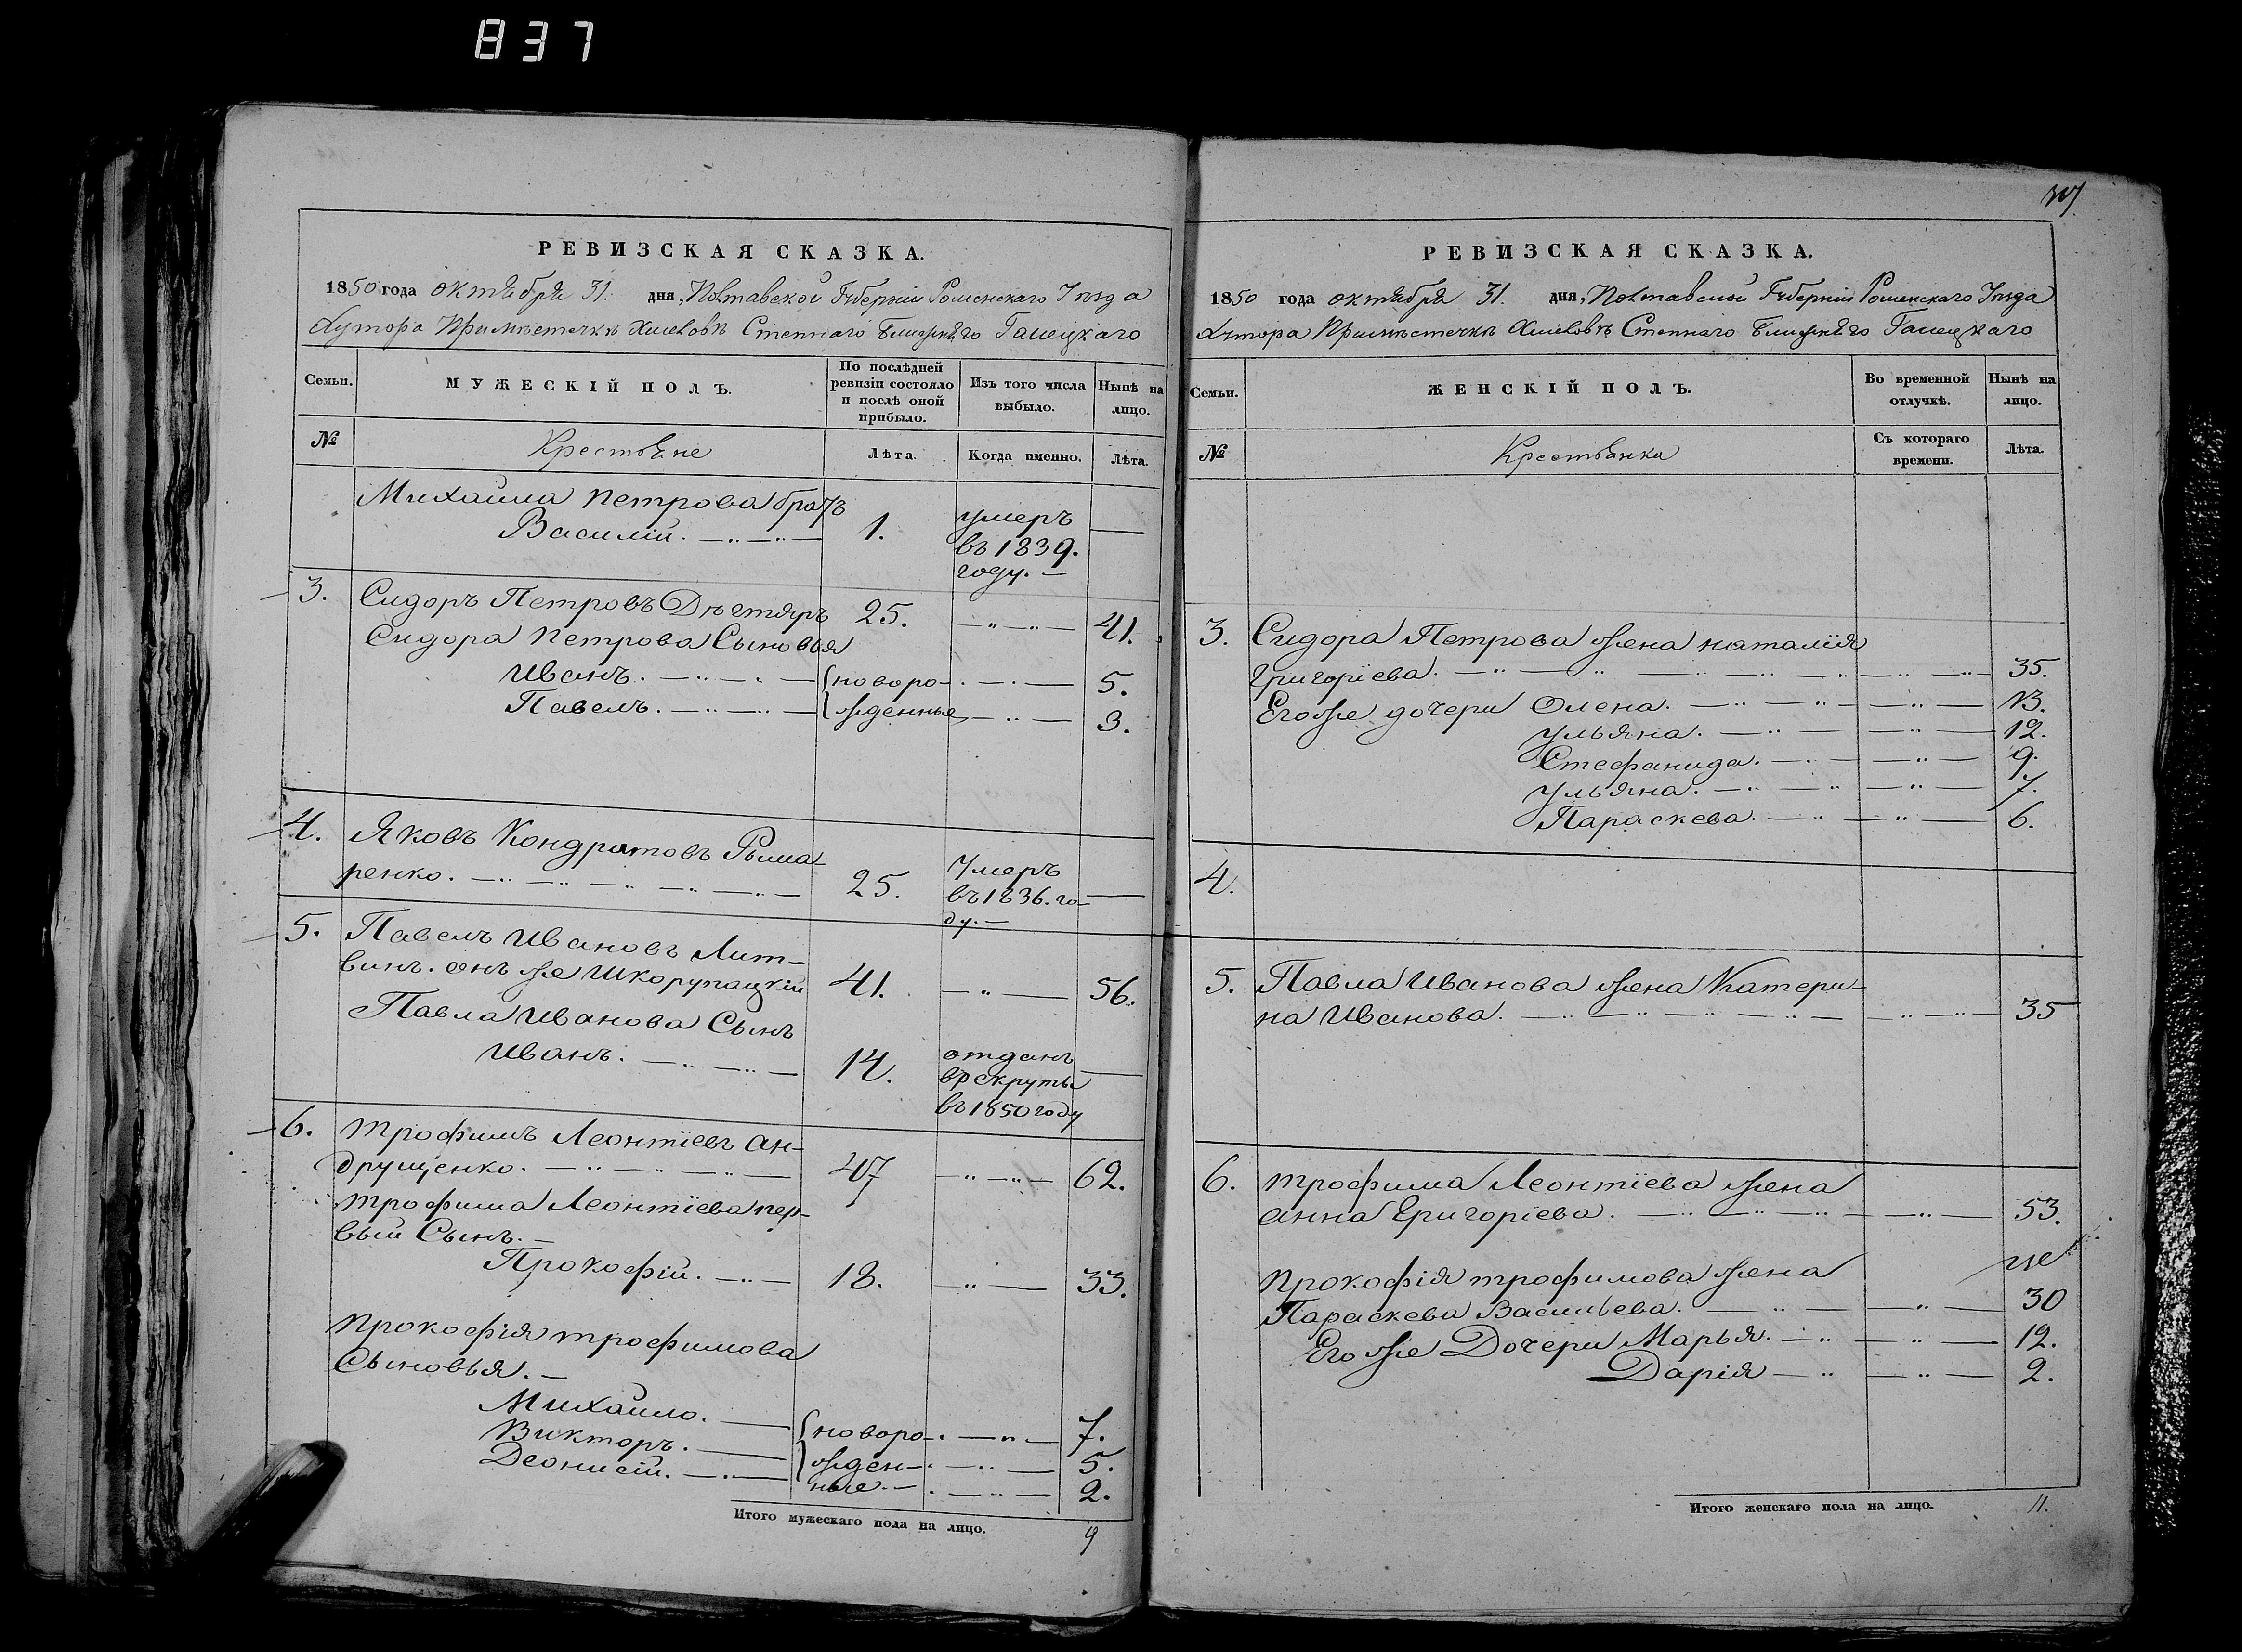 837
РЕВИЗСКАЯ СКАЗКА.
1850 года октября 31. дня, Полтавской Губернии Роменскаго Уезда
Хутора При местечке Хмелове Степнаго Ближняго Галецкаго
Семьи. МУЖЕСКІЙ ПОЛЪ. По послѣдней ревизіи состояло и послѣ оной прибыло. Изъ того числа выбыло. Нынѣ на лицо.
№ Крестьяне Лѣта. Когда именно. Лѣта.
Михайла Петрова братъ
Василій. 1. умеръ въ 1839. году. —
3. Сидоръ Петровъ Дѣгтяръ 25. 41.
Сидора Петрова Сыновья
Иванъ. новоро- 5.
Павелъ. жденные 3.
4. Яковъ Кондратовъ Рыма-
ренко. 25. умеръ въ 1836. го- ду. —
5. Павелъ Ивановъ Лит-
винъ. онъ же Шкорупацкій 41. 56.
Павла Иванова Сынъ
Иванъ. 14. отданъ в рекруты въ 1850 году
6. Трофимъ Леонтіевъ Ан-
друщенко. 47 62.
Трофима Леонтіева пер-
вый Сынъ. —
Прокофій. 18. 33.
Прокофія Трофимова
Сыновья. —
Михайло. новоро- 7.
Викторъ. жден- 5.
Деонисій. ные. — 2.
Итого мужескаго пола на лицо. 9
РЕВИЗСКАЯ СКАЗКА.
1850 года октября 31. дня, Полтавской Губернии Роменскаго Уезда
Хутора При местечке Хмелове Степнаго Ближняго Галецкаго
Семьи. ЖЕНСКІЙ ПОЛЪ. Во временной отлучкѣ. Нынѣ на лицо.
№ Крестьянки Съ котораго времени. Лѣта.
3. Сидора Петрова жена Наталія
Григоріева. 35.
Его же дочери Олена. 13.
Ульяна. 12.
Стефанида. 9.
Ульяна. 7.
Параскева. 6.
4.
5. Павла Иванова жена Катери-
на Иванова. 35
6. Трофима Леонтіева жена
Анна Григоріева. 53.
Прокофія Трофимова жена
Параскева Васильева. 30
Его же Дочери Марья. 12.
Дарія 2.
Итого женскаго пола на лицо. 11.